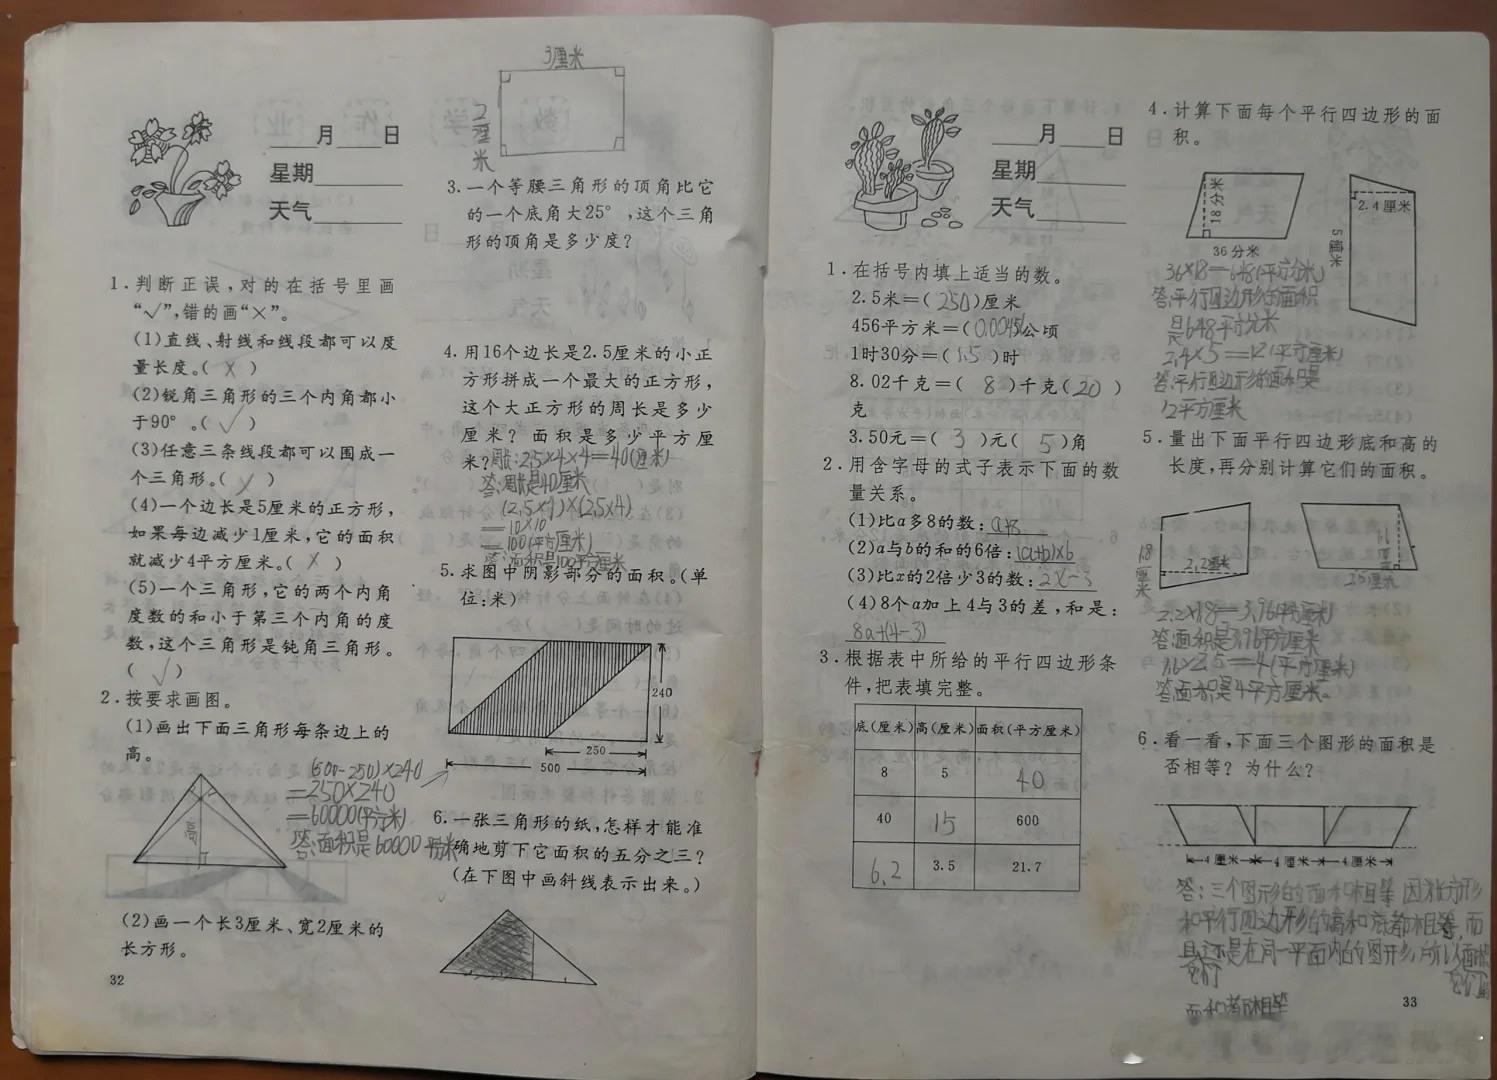 ___月___日
星期______
天气______
1.判断正误,对的在括号里画
“√”,错的画“×”。
(1)直线、射线和线段都可以度
量长度。( × )
(2)锐角三角形的三个内角都小
于90°。( √ )
(3)任意三条线段都可以围成一
个三角形。( × )
(4)一个边长是5厘米的正方形,
如果每边减少1厘米,它的面积
就减少4平方厘米。( × )
(5)一个三角形,它的两个内角
度数的和小于第三个内角的度
数,这个三角形是钝角三角形。
( √ )
2.按要求画图。
(1)画出下面三角形每条边上的
高。
高
(2)画一个长3厘米、宽2厘米的
长方形。
32
3厘米
2厘米
3.一个等腰三角形的顶角比它
的一个底角大25°,这个三角
形的顶角是多少度?
4.用16个边长是2.5厘米的小正
方形拼成一个最大的正方形,
这个大正方形的周长是多少
厘米? 面积是多少平方厘
米?周长:2.5×4×4=40(厘米)
答:周长是40厘米
(2.5×4)×(2.5×4)
=10×10
=100(平方厘米)
答:面积是100平方厘米
5.求图中阴影部分的面积。(单
位:米)
240
250
500
(500-250)×240
=250×240
=60000(平方米)
答:面积是60000平方米
6.一张三角形的纸,怎样才能准
确地剪下它面积的五分之三?
(在下图中画斜线表示出来。)
___月___日
星期______
天气______
1.在括号内填上适当的数。
2.5米=( 250 )厘米
456平方米=( 0.0456公顷
1时30分=( 1.5 )时
8.02千克=( 8 )千克( 20 )
克
3.50元=( 3 )元( 5 )角
2.用含字母的式子表示下面的数
量关系。
(1)比a多8的数:a+8
(2)a与b的和的6倍:(a+b)×6
(3)比x的2倍少3的数:2x-3
(4)8个a加上4与3的差,和是:
8a+(4-3)
3.根据表中所给的平行四边形条
件,把表填完整。
底(厘米) 高(厘米) 面积(平方厘米)
8 5 40
40 15 600
6.2 3.5 21.7
4.计算下面每个平行四边形的面
积。
18分米
36分米
2.4厘米
5厘米
36×18=648(平方分米)
答:平行四边形的面积
是648平方分米
2.4×5=12(平方厘米)
答:平行四边形的面积是
12平方厘米
5.量出下面平行四边形底和高的
长度,再分别计算它们的面积。
1.8厘米
2.2厘米
1.6厘米
2.5厘米
2.2×1.8=3.96(平方厘米)
答:面积是3.96平方厘米
1.6×2.5=4(平方厘米)
答:面积是4平方厘米。
6.看一看,下面三个图形的面积是
否相等? 为什么?
4厘米 4厘米 4厘米
答:三个图形的面积相等 因为长方形
和平行四边形的高和底都相等,而
且还是在同一平面内的图形,所以
它们
面积都相等
33